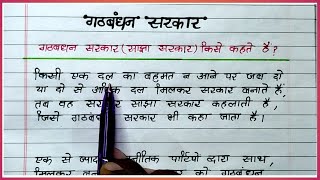 गठबंधन सरकार
गठबंधन सरकार (साझा सरकार) किसे कहते है?
किसी एक दल का बहुमत न आने पर जब दो
या दो से अधिक दल मिलकर सरकार बनाते हैं,
तब वह सरकार साझा सरकार कहलाती है,
जिसे गठबंधन सरकार भी कहा जाता है।
एक से ज्यादा राजनीतिक पार्टियो द्वारा साथ,
मिलकर सरकार को गठबंधन